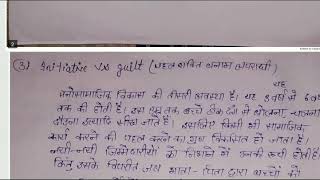 (3) Initiative Vs guilt (पहल शक्ति बनाम अपराधी)
यह
मनोसामाजिक विकास की तीसरी अवस्था है। यह 3 वर्ष से 6 वर्ष
तक की होती है। इस उम्र तक बच्चे ठीक ढंग से बोलना चलना
दौड़ना इत्यादि सीख जाते है। इसलिए किसी भी सामाजिक
कार्य करने की पहल करने का गुण विकसित हो जाता है।
नयी-नयी जिम्मेदारीयों को निभाने में उनकी रूची होती है
किंतु इसके विपरीत जब माता-पिता द्वारा बच्चों की